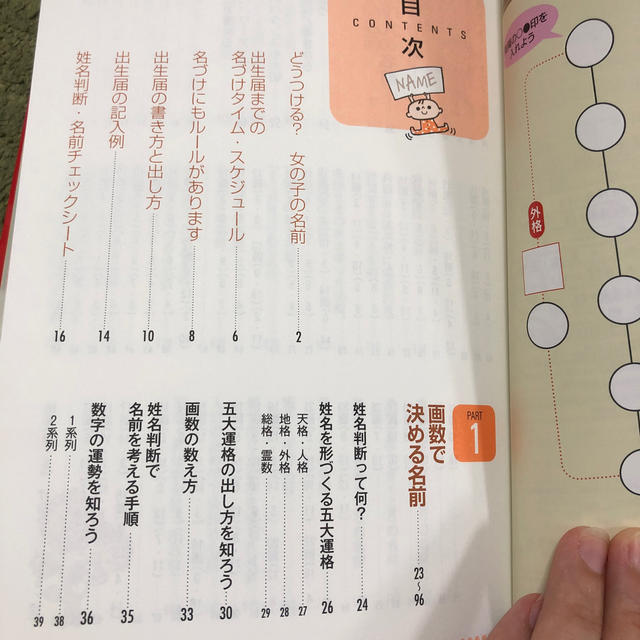 目次
CONTENTS
NAME
どうつける? 女の子の名前 2
出生届までの
名づけタイム・スケジュール 6
名づけにもルールがあります 8
出生届の書き方と出し方 10
出生届の記入例 14
姓名判断・名前チェックシート 16
PART
1
画数で
決める名前 23~96
姓名判断って何? 24
姓名を形づくる五大運格 26
天格・人格 27
地格・外格 28
総格・霊数 29
五大運格の出し方を知ろう 30
画数の数え方 33
姓名判断で
名前を考える手順 35
数字の運勢を知ろう 36
1系列 38
2系列 39
○●印を
入れよう
外格